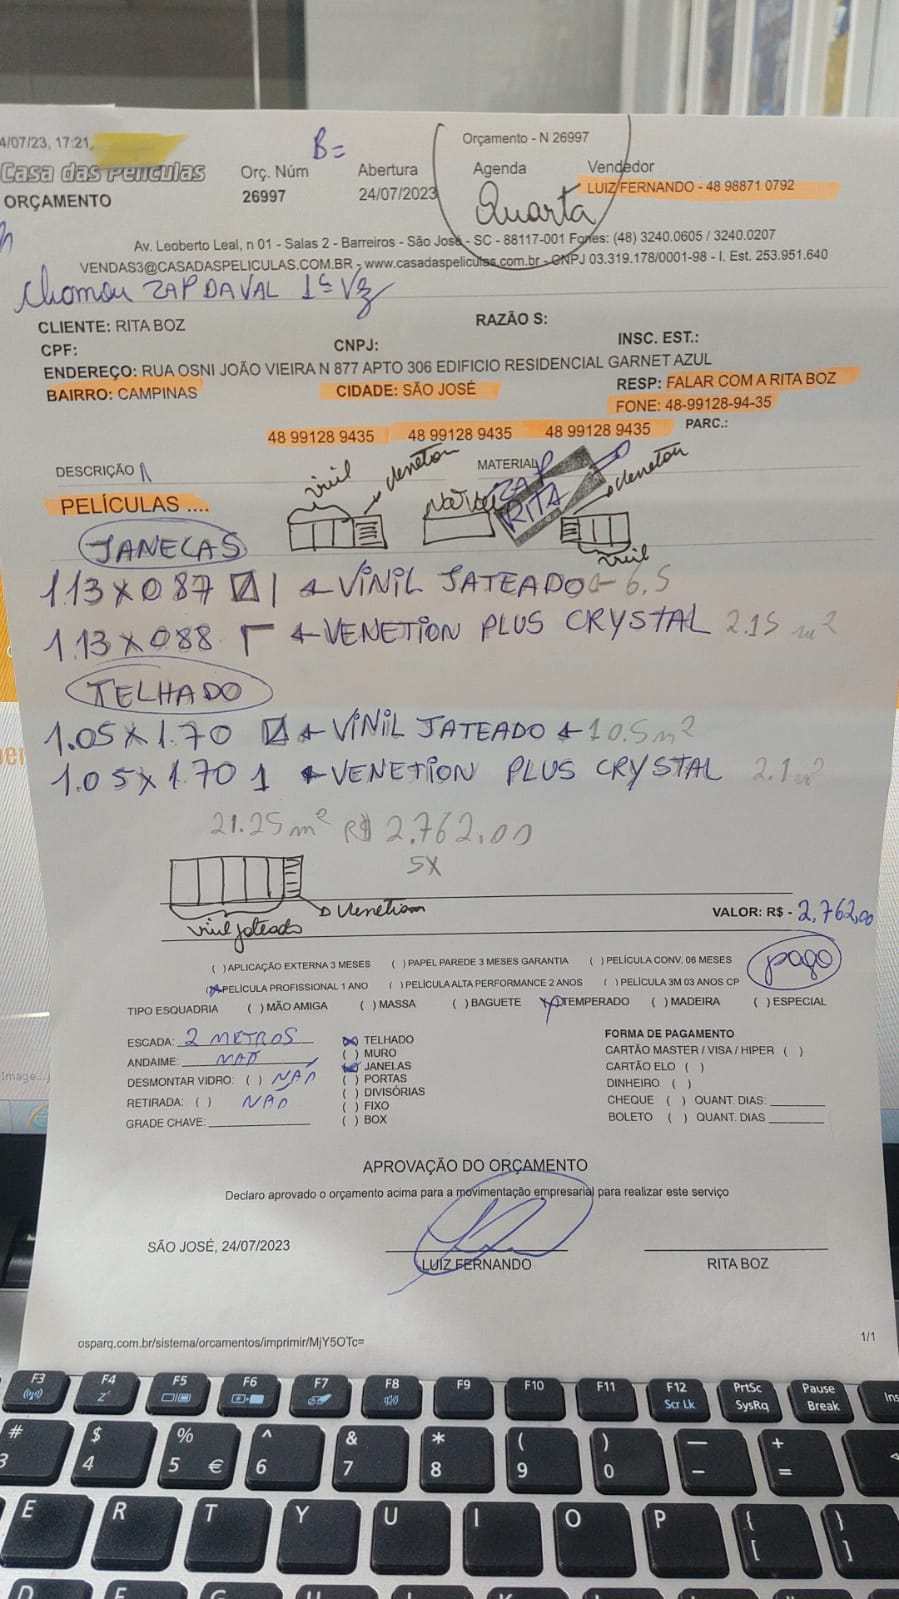 4/07/23, 17:21,
Orçamento - N 26997
B=
Casa das Películas
Orç. Núm Abertura Agenda Vendedor
ORÇAMENTO 26997 24/07/2023 Quarta LUIZ FERNANDO - 48 98871 0792
Av. Leoberto Leal, n 01 - Salas 2 - Barreiros - São José - SC - 88117-001 Fones: (48) 3240.0605 / 3240.0207
VENDAS3@CASADASPELICULAS.COM.BR - www.casadaspeliculas.com.br - CNPJ 03.319.178/0001-98 - I. Est. 253.951.640
Chamou ZAP DA VAL 1ª Vz
CLIENTE: RITA BOZ RAZÃO S:
CPF: CNPJ: INSC. EST.:
ENDEREÇO: RUA OSNI JOÃO VIEIRA N 877 APTO 306 EDIFICIO RESIDENCIAL GARNET AZUL
BAIRRO: CAMPINAS CIDADE: SÃO JOSÉ RESP: FALAR COM A RITA BOZ
FONE: 48-99128-94-35
48 99128 9435 48 99128 9435 48 99128 9435 PARC.:
DESCRIÇÃO MATERIAL
ZAP RITA
PELÍCULAS ....
JANELAS
1.13 x 0.87 1 VINIL JATEADO 6,5
1.13 x 0.88 VENETION PLUS CRYSTAL 2.15 m²
TELHADO
1.05 x 1.70 VINIL JATEADO 10.5 m²
1.05 x 1.70 1 VENETION PLUS CRYSTAL 2.1 m²
21.25 m² R$ 2,762,00
5X
Venetiam
vinil jateado
VALOR: R$ - 2,762,00
( )APLICAÇÃO EXTERNA 3 MESES ( ) PAPEL PAREDE 3 MESES GARANTIA ( ) PELÍCULA CONV. 06 MESES
pago
(X)PELÍCULA PROFISSIONAL 1 ANO ( )PELÍCULA ALTA PERFORMANCE 2 ANOS ( ) PELÍCULA 3M 03 ANOS CP
TIPO ESQUADRIA ( ) MÃO AMIGA ( ) MASSA ( ) BAGUETE (X) TEMPERADO ( ) MADEIRA ( ) ESPECIAL
ESCADA: 2 METROS (X) TELHADO FORMA DE PAGAMENTO
ANDAIME: NÃO ( ) MURO CARTÃO MASTER / VISA / HIPER ( )
DESMONTAR VIDRO: ( ) NÃO (X) JANELAS CARTÃO ELO ( )
( ) PORTAS DINHEIRO ( )
RETIRADA: ( ) NÃO ( ) DIVISÓRIAS CHEQUE ( ) QUANT. DIAS:
( ) FIXO BOLETO ( ) QUANT. DIAS
GRADE CHAVE: ( ) BOX
APROVAÇÃO DO ORÇAMENTO
Declaro aprovado o orçamento acima para a movimentação empresarial para realizar este serviço
SÃO JOSÉ, 24/07/2023
LUIZ FERNANDO RITA BOZ
osparq.com.br/sistema/orcamentos/imprimir/MjY5OTc= 1/1
F3 F4 F5 F6 F7 F8 F9 F10 F11 F12 PrtSc Pause Ins
Scr Lk SysRq Break
# $ % ^ & * ( ) — +
3 4 5 € 6 7 8 9 0 - =
E R T Y U I O P { }
[ ]